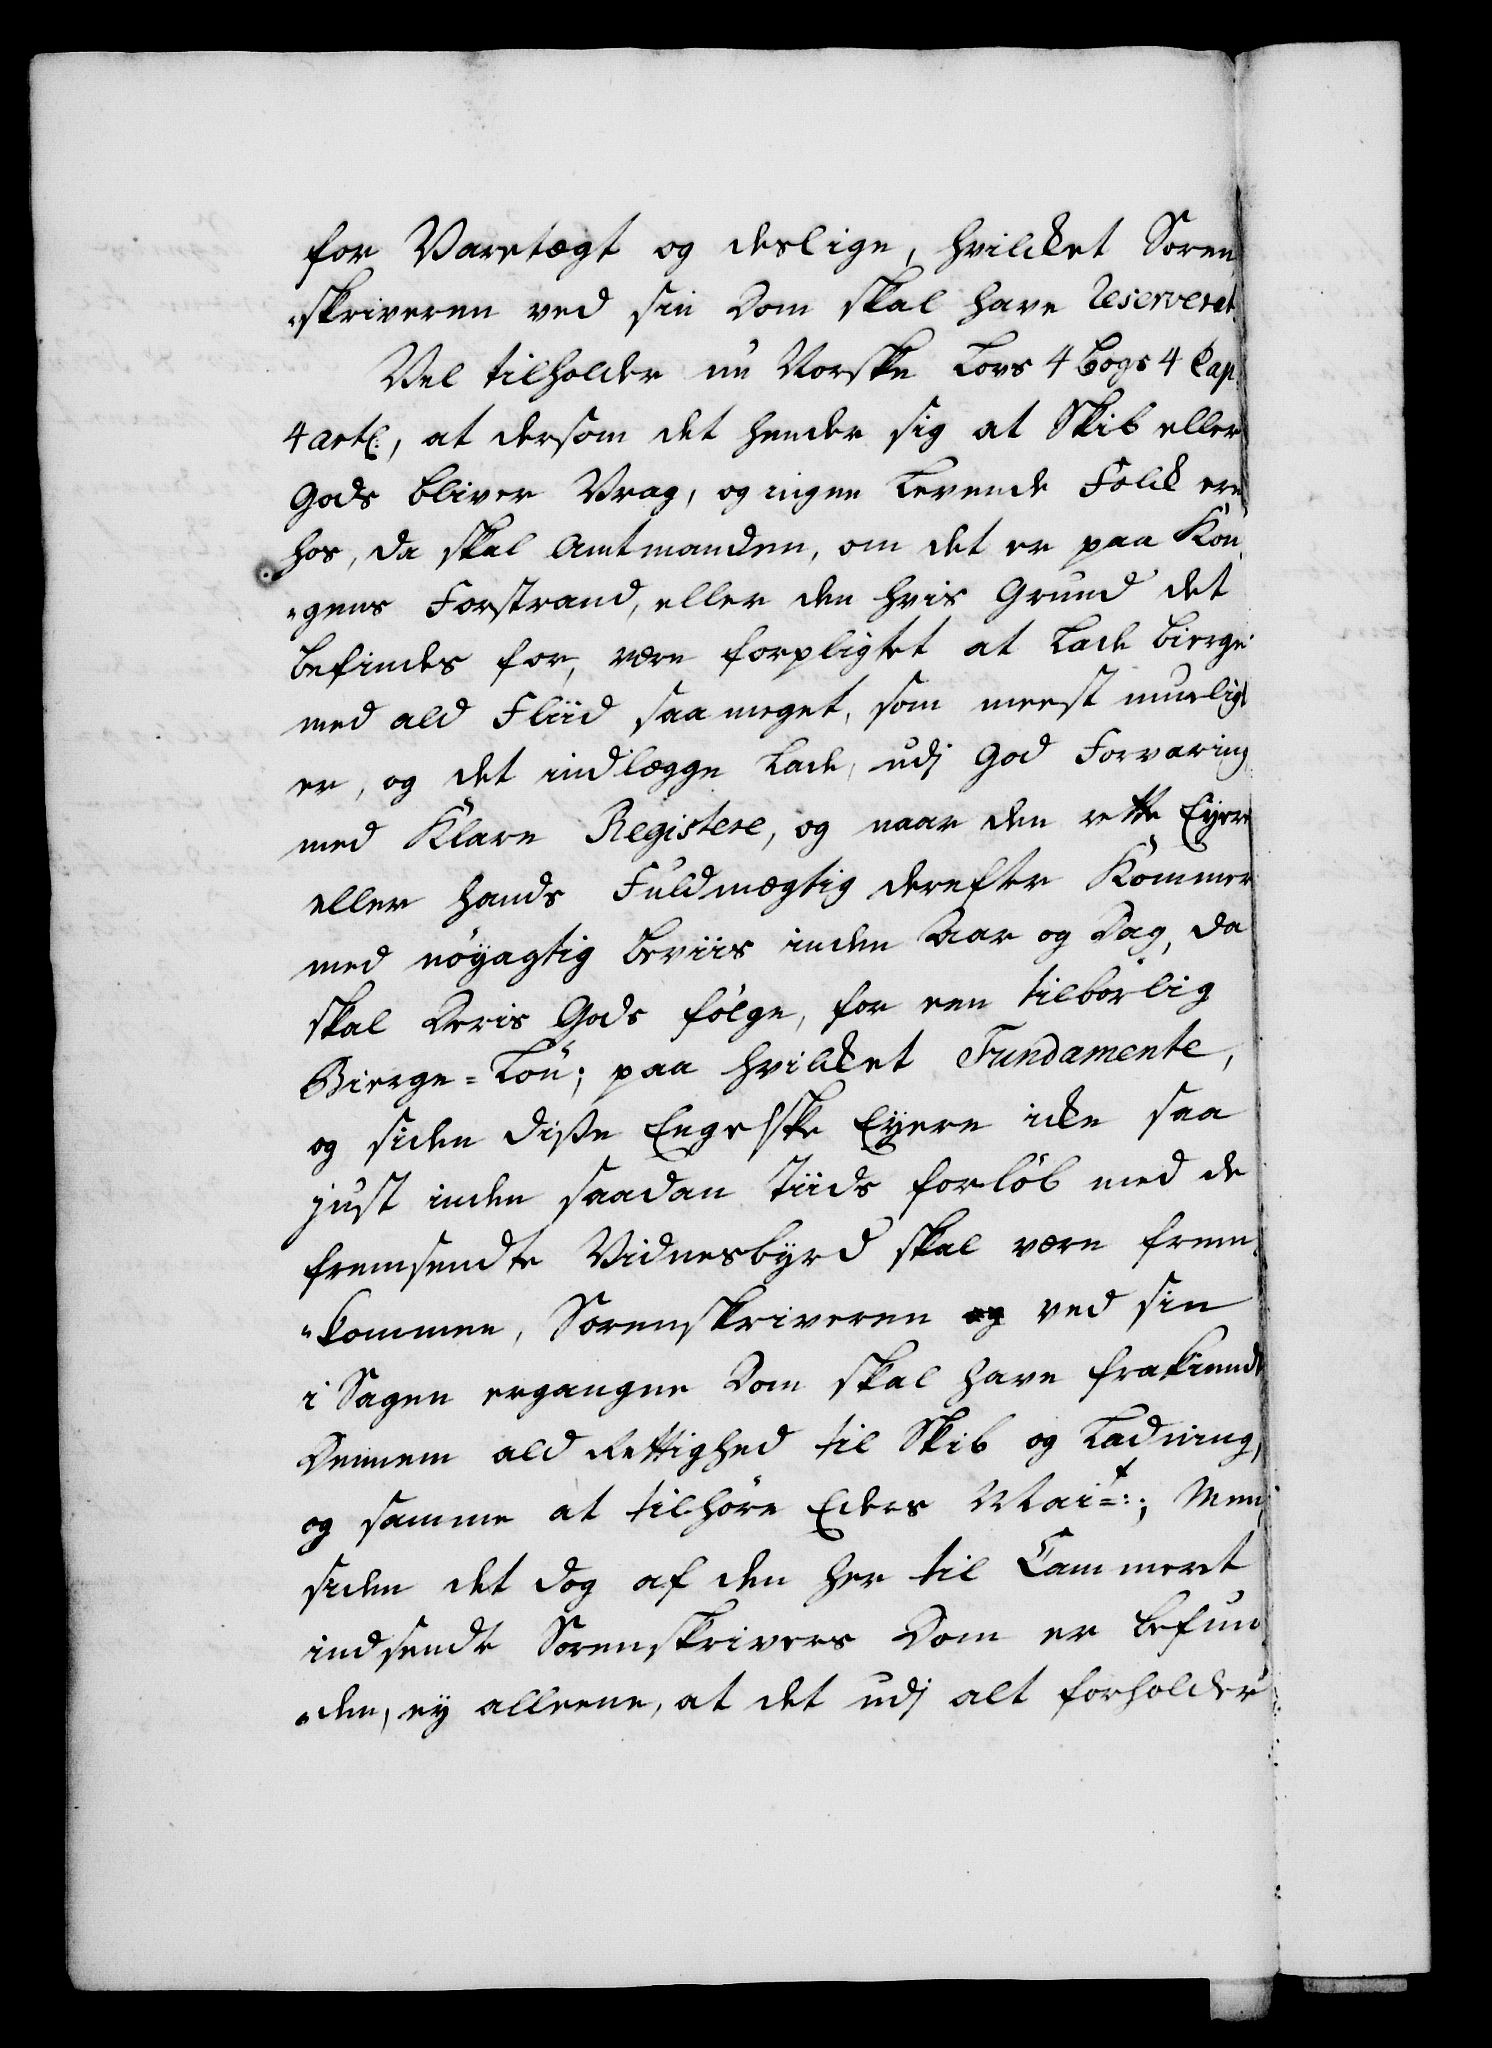 for Varetægt og deslige, hvilcket Soren,,
„skriveren ved sin Dom skal have reserveret.
Vel tilholder nu Norske Lovs 4 Bogs 4 Cap:
4 artl:, at dersom det hender sig at Skib eller
Gods bliver Vrag, og ingen Levende Folck ere
hos, da skal Amtmanden, om det er paa Kon,,
„gens Forstrand, eller den hvis Grund det
befindes for, være forpligtet at Lade bierge
med ald Fliid saa meget, som meest muelig
er, og det indlægge Lade, udj God Forvaring
med Klare Registere, og naar den rette Eyere
eller hands Fuldmægtig derefter Kommer
med nöyagtig Beviis inden Aar og Dag, da
skal Deris Gods fölge, for een tilbörlig
Bierge=Lön; paa hvilcket Fundamente,
og siden disse Engelske Eyere icke saa
just inden saadan Tiids forlöb med de
fremsendte Vidnesbyrd skal være frem,,
„kommen, Sorenskriveren og ved sin
i Sagen ergangne Dom skal have frakiendt
Dennem ald Rettighed til Skib og Ladning,
og samme at tilhöre Eders Mait:; Men,
siden det dog af den her til Cammeret
indsendte Sorenskrivers Dom er befun,,
„den, ey alleene, at det udj alt forholder